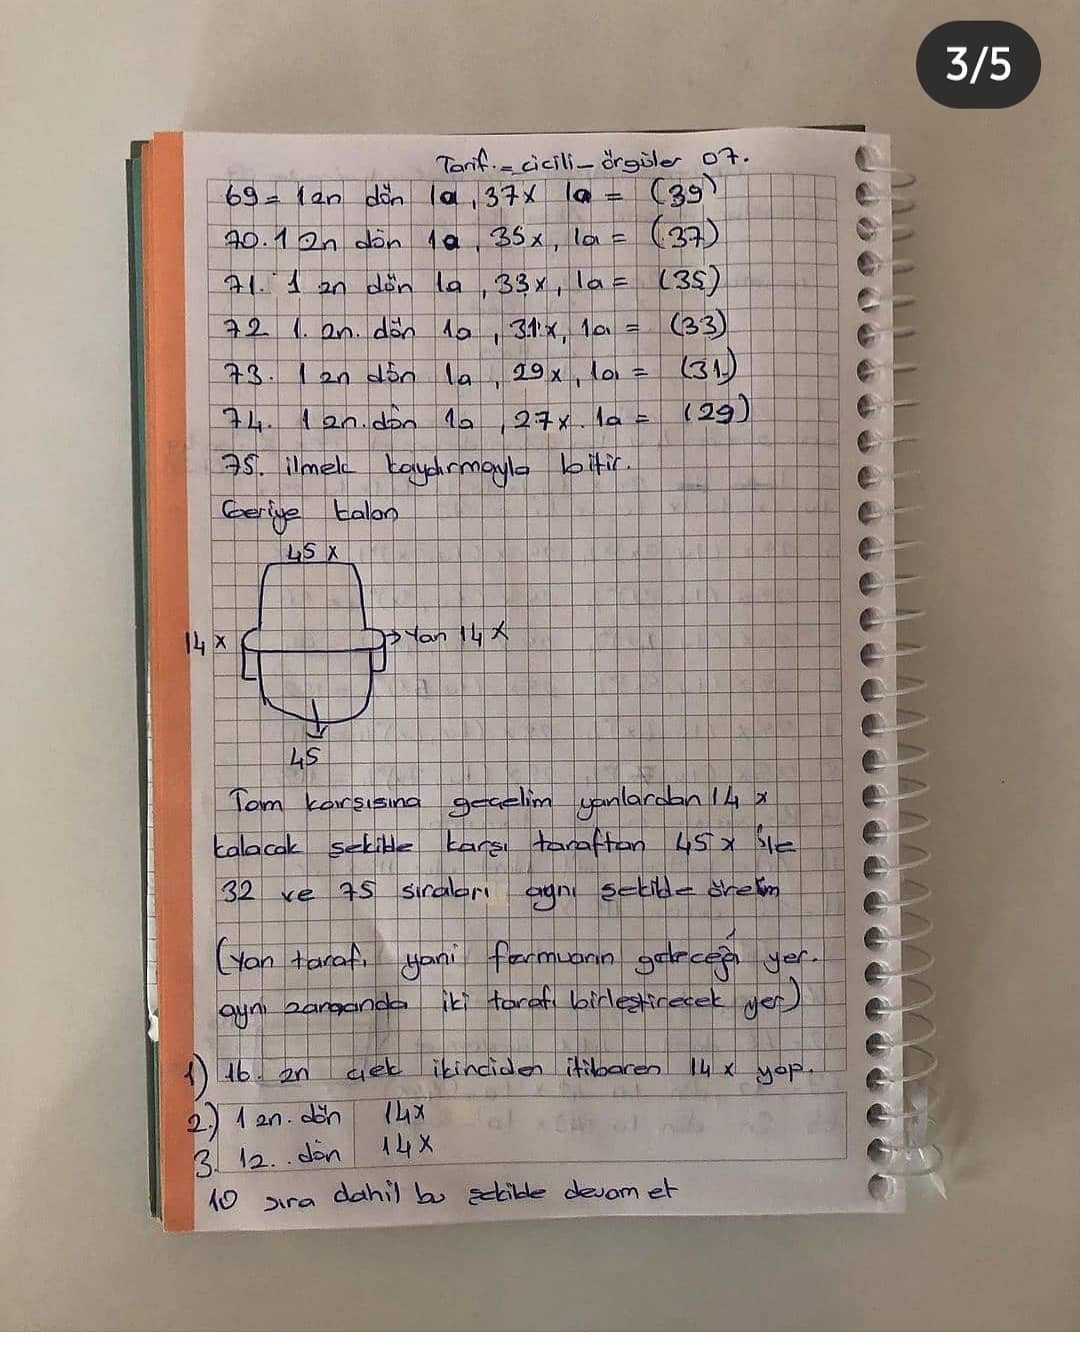 3/5
Tarif.= cicili_örgüler 07.
69= 1 zn dön 1a, 37x 1a = (39)
70. 1 zn dön 1a, 35x, 1a = (37)
71. 1 zn dön 1a, 33x, 1a = (35)
72 1. zn. dön 1a, 31x, 1a = (33)
73. 1 zn dön 1a, 29x, 1a = (31)
74. 1 zn. dön 1a, 27x. 1a = (29)
75. ilmek kaydırmayla bitir.
Geriye kalan
45 x
14 x
Yan 14 x
45
Tam karşısına geçelim yanlardan 14 x
kalacak şekilde karşı taraftan 45 x ile
32 ve 75 sıraları aynı şekilde örelim
(Yan tarafı yani fermuarın geleceği yer.
aynı zamanda iki tarafı birleştirecek yer)
1) 16. zn çek ikinciden itibaren 14 x yap.
2.) 1 zn. dön 14x
3. 1z.. dön 14x
10 sıra dahil bu şekilde devam et